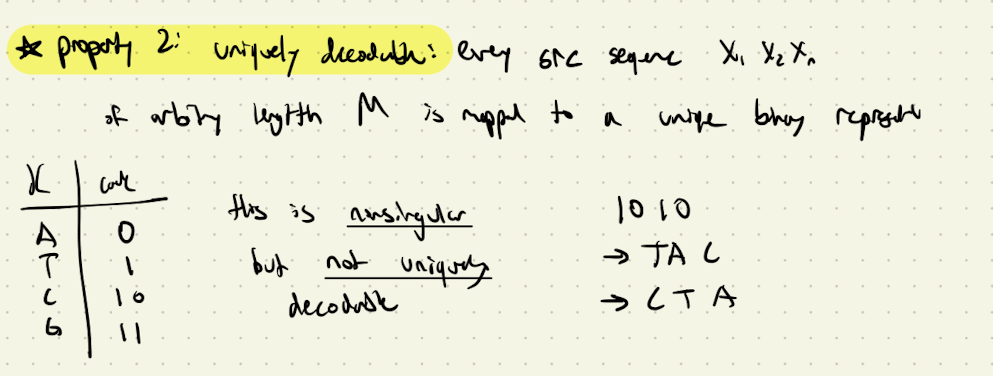 ☆ property 2: uniquely decodable: every src sequence X₁ X₂ Xₙ
of arbitry length M is mapped to a unique binary
X | code
A 0
T 1
C 10
G 11
this is nonsingular
but not uniquely
decodable
1010
→ TAC
→ CTA